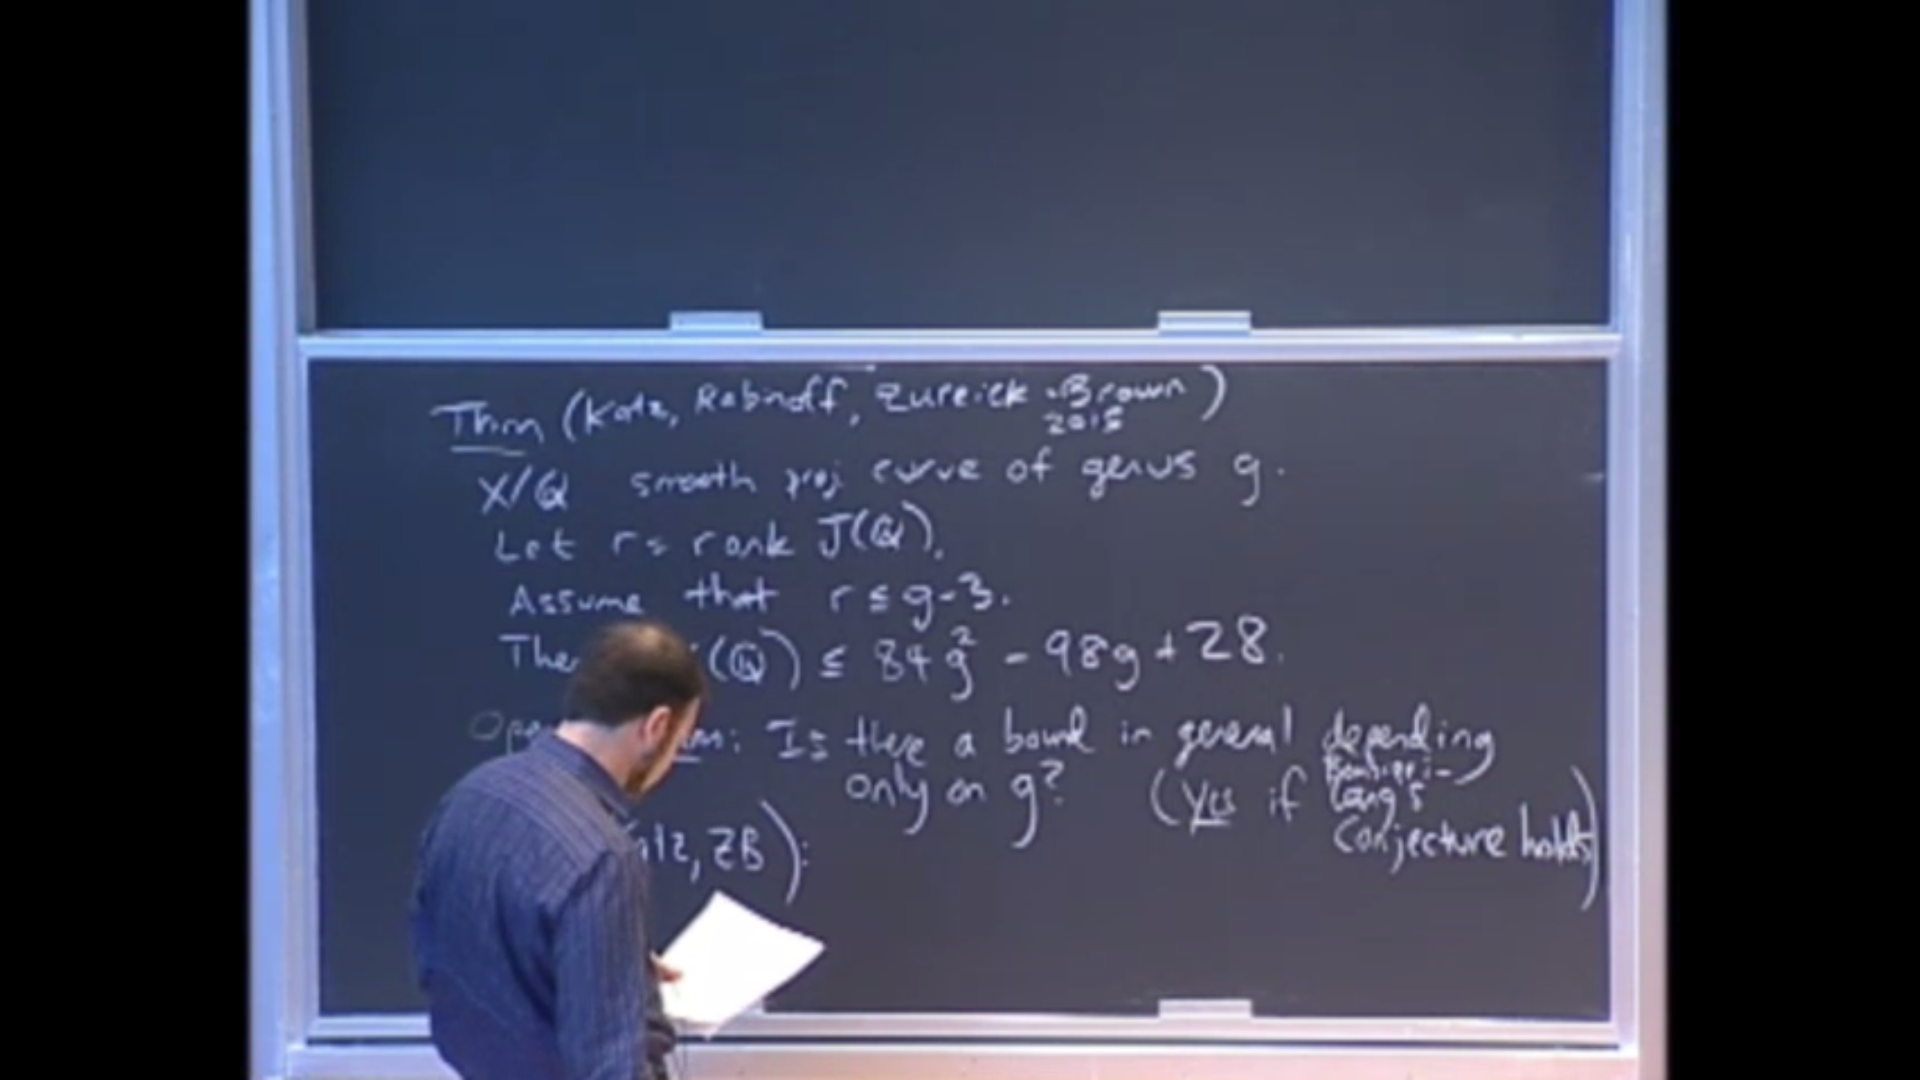 Thm (Katz, Rabinoff, Zureick-Brown)
2015
X/ℚ smooth proj. curve of genus g.
Let r = rank J(ℚ).
Assume that r ≤ g-3.
The (ℚ) ≤ 84g² - 98g + 28.
Ope m: Is there a bound in general depending
only on g? (Yes if Bombieri-
Lang's
conjecture holds)
tz, ZB):